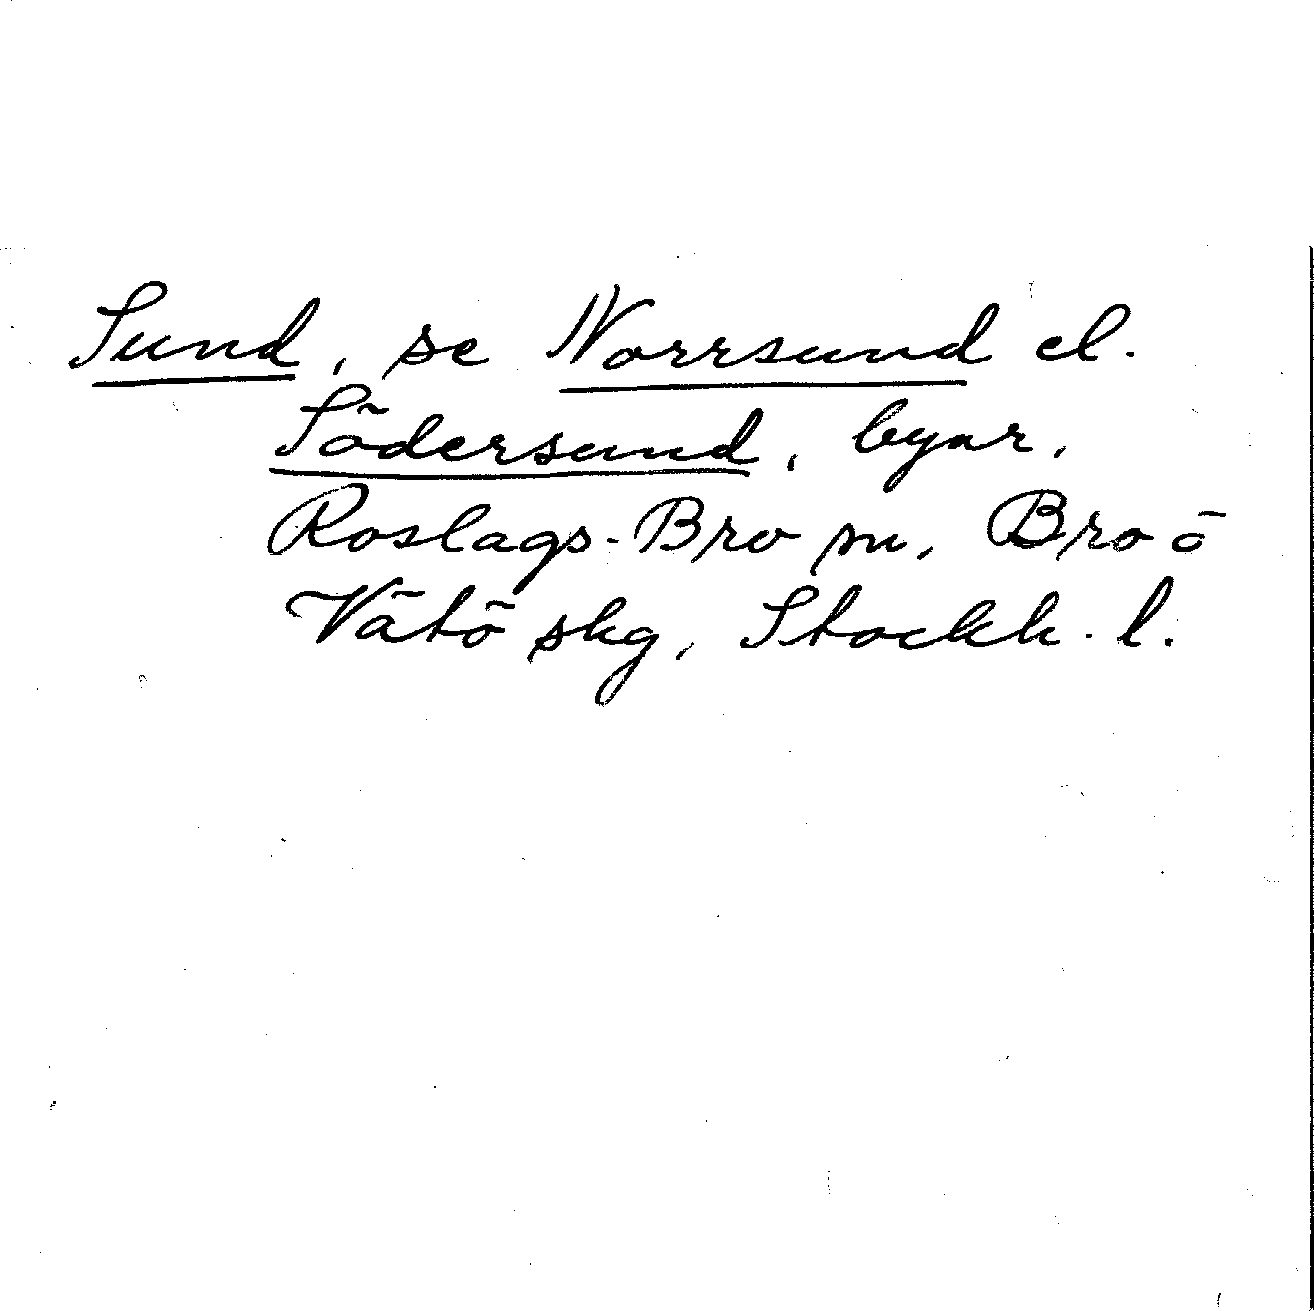 Sund, se Norrsund el.
Södersund, byar,
Roslags-Bro sn, Bro o
Vätö skg, Stockh. l.